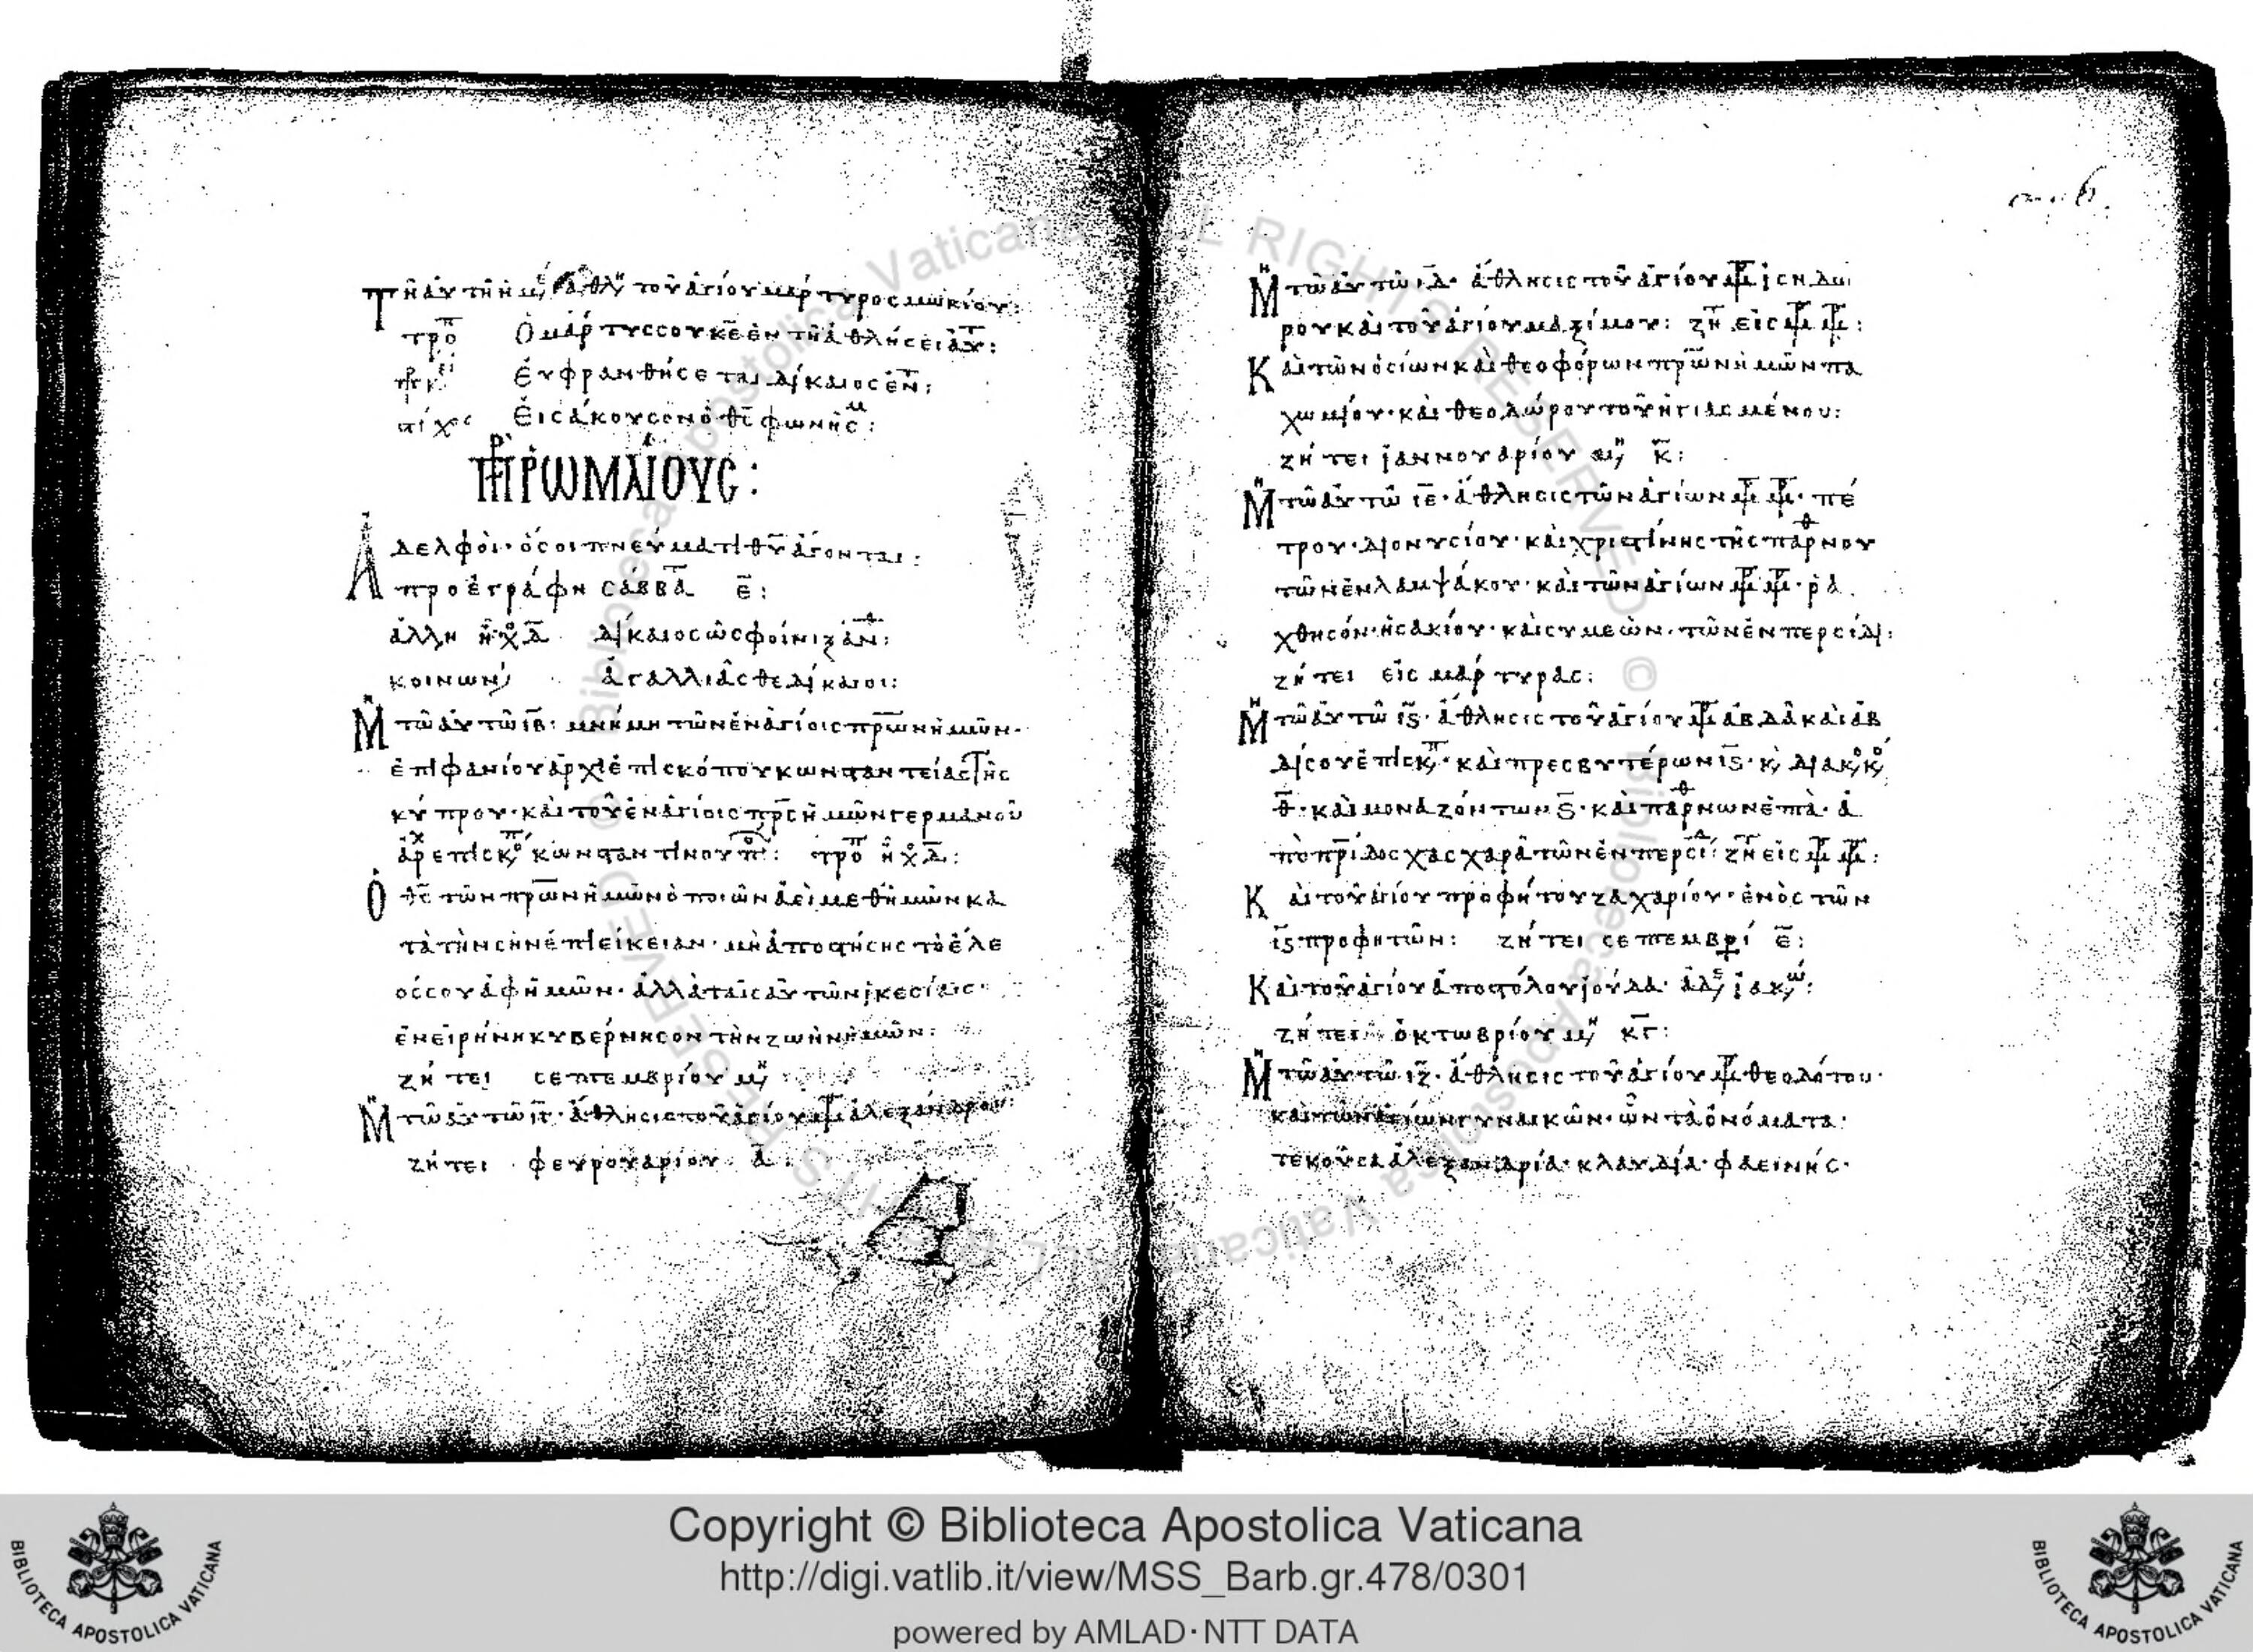 Τῆ αὐτῆ ἡμ ἄθλ τοῦ ἁγίου μάρτυρος μωκίου:
τρο Ὁ μάρτυς σου κε ἐν τῆ ἀθλήσει αυτ:
Ἐυφρανθήσεται δίκαιος ἐν:
στίχος Ἐισάκουσον ὁ θς φωνῆς μ:
ΠΡ ΡΩΜΑΙΟΥΣ:
Ἀδελφοὶ· ὅσοι πνεύματι θυ ἄγονται:
προεγράφη σάββα ε:
ἄλλη ἦχ δ Δίκαιος ὡς φοίνιξ ἀν:
κοινων ἀγαλλιᾶσθε δίκαιοι:
Μ τῶ αὐτῶ ιβ: μνήμη τῶν ἐν ἁγίοις πρων ἡμῶν·
ἐπιφανίου ἀρχιεπισκόπου κωνσταντείας τῆς
κύπρου· καὶ τοῦ ἐν ἁγίοις πρς ἡμῶν γερμανοῦ
ἀρχεπισκο κωνσταντίνου π: τρο ἦχ δ:
Ὁ θς τῶν πρων ἡμῶν ὁ ποιῶν ἀεὶ μεθ ἡμῶν κα
τὰ τὴν σὴν ἐπιείκειαν· μὴ ἀποστήσης τὸ ἔλε
ός σου ἀφ ἡμῶν· ἀλλὰ ταῖς αὐτῶν ἱκεσίαις·
ἐν εἰρήνη κυβέρνησον τὴν ζωὴν ἡμῶν:
ζήτει σεπτεμβρίου μ
Μ τῶ αὐτῶ ιγ· ἄθλησις τοῦ ἁγίου μρ ἀλεξάνδρου:
ζήτει φευρουαρίου α:
Μ τῶ αὐτῶ ιδ· ἄθλησις τοῦ ἁγίου μρ ἰσηδώ
ρου καὶ τοῦ ἁγίου μαξίμου: ζητ εἰς μρ μρ:
Καὶ τῶν ὁσίων καὶ θεοφόρων πρων ἡμῶν πα
χωμίου· καὶ θεοδώρου τοῦ ἡγιασμένου:
ζήτει ἰαννουαρίου μη κ:
Μ τῶ αὐτῶ ιε· ἄθλησις τῶν ἁγίων μρ μρ· πέ
τρου· διονυσίου· καὶ χριστίνης τῆς παρθνου
τῶν ἐν λαμψάκου· καὶ τῶν ἁγίων μρ μρ· ῥα
χθησόν· ἠσακίου· καὶ συμεὼν· τῶν ἐν περσίδι:
ζήτει εἰς μάρτυρας:
Μ τῶ αὐτῶ ις· ἄθλησις τοῦ ἁγίου μρ ἀβδᾶ καὶ ἀβ
δίσου ἐπισκπ· καὶ πρεσβυτέρων ις· κ διακο κ
θ· καὶ μοναζόντων ς· καὶ παρθνων ἑπτὰ· ἀ
πὸ πρίδος χασχαρᾶ τῶν ἐν περσί: ζητ εἰς μρ μρ:
Καὶ τοῦ ἁγίου προφήτου ζαχαρίου· ἑνὸς τῶν
ις προφητῶν: ζήτει σεπτεμβρί ε:
Καὶ τοῦ ἁγίου ἀποστόλου ἰούδα· ἀδε ἰακώ:
ζήτει ὀκτωβρίου μη κγ:
Μ τῶ αὐτῶ ιζ· ἄθλησις τοῦ ἁγίου μρ θεοδότου·
καὶ τῶν ἁγίων γυναικῶν· ὧν τὰ ὀνόματα·
τεκοῦσα ἀλεξανδρία· κλαυδία· φαεινῆς·
Copyright © Biblioteca Apostolica Vaticana
http://digi.vatlib.it/view/MSS_Barb.gr.478/0301
powered by AMLAD·NTT DATA
BIBLIOTECA APOSTOLICA VATICANA
BIBLIOTECA APOSTOLICA VATICANA